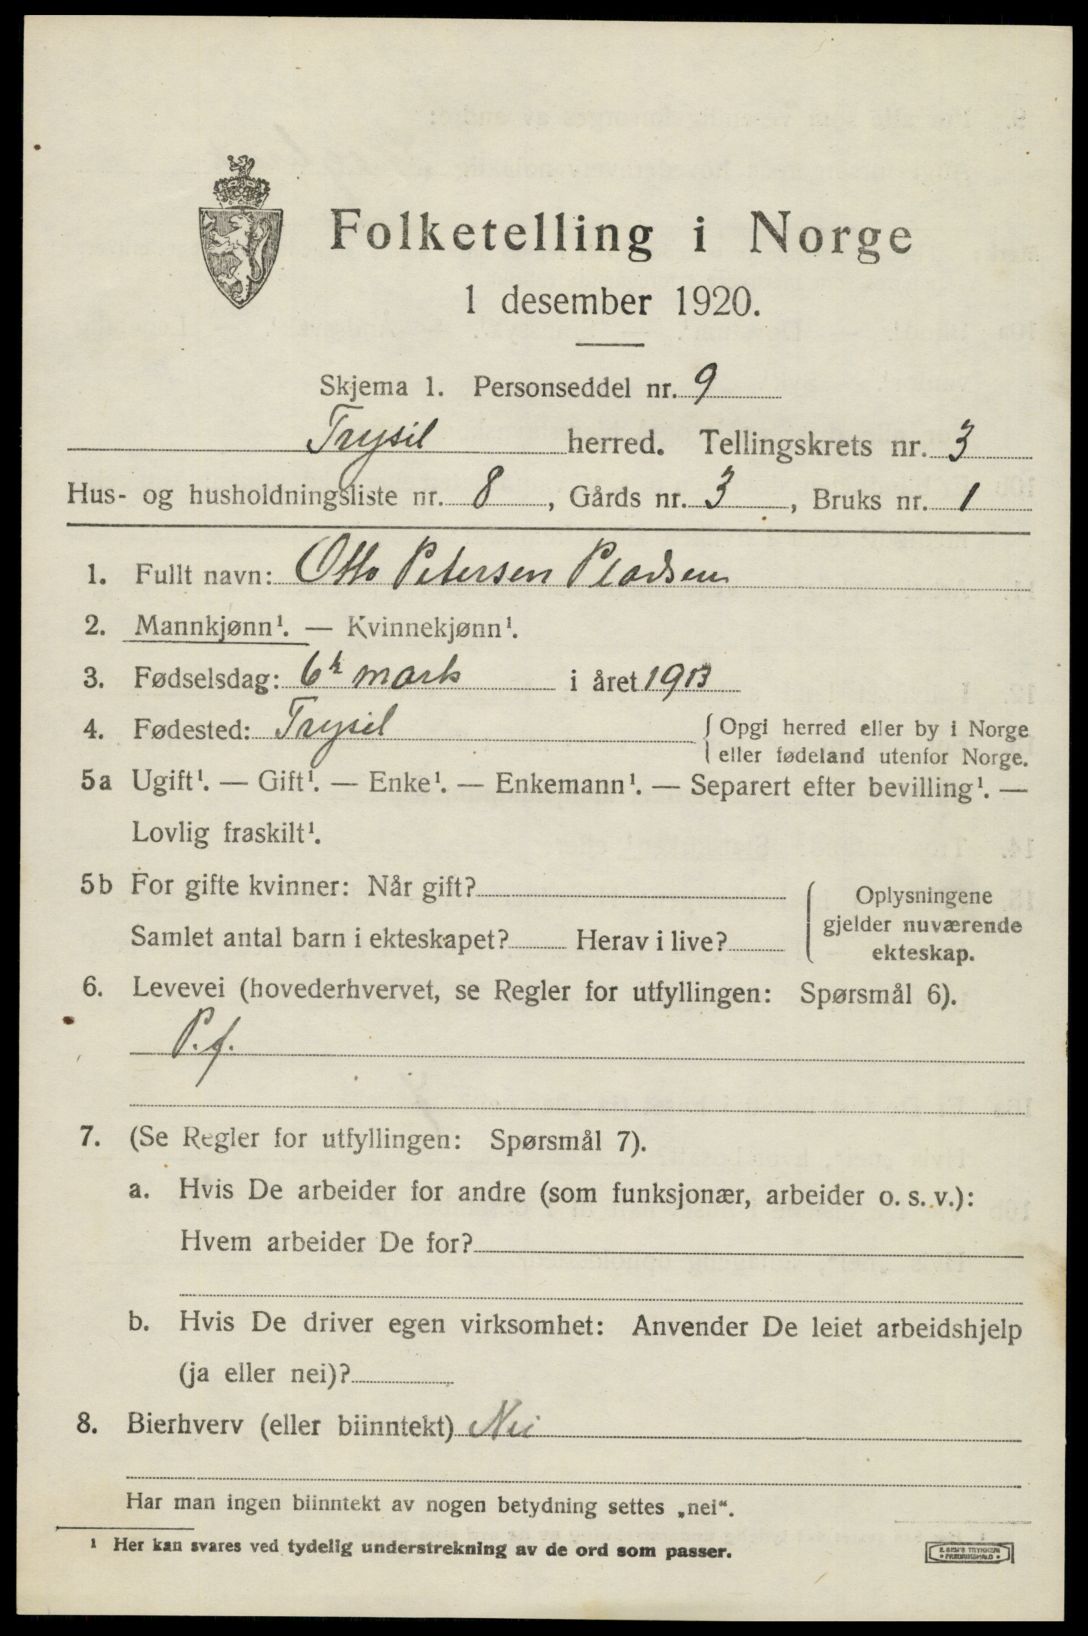 Folketelling i Norge
1 desember 1920.
Skjema 1. Personseddel nr. 9
Trysil herred. Tellingskrets nr. 3
Hus- og husholdningsliste nr. 8, Gårds nr. 3, Bruks nr. 1
1. Fullt navn: Otto Petersen Pladsen
2. Mannkjønn¹. — Kvinnekjønn¹.
3. Fødselsdag: 6te mars i året 1913
4. Fødested: Trysil { Opgi herred eller by i Norge
eller fødeland utenfor Norge.
5a Ugift¹. — Gift¹. — Enke¹. — Enkemann¹. — Separert efter bevilling¹. —
Lovlig fraskilt¹.
5b For gifte kvinner: Når gift?
Samlet antal barn i ekteskapet? Herav i live?
{ Oplysningene
gjelder nuværende
ekteskap.
6. Levevei (hovederhvervet, se Regler for utfyllingen: Spørsmål 6).
P.f.
7. (Se Regler for utfyllingen: Spørsmål 7).
a. Hvis De arbeider for andre (som funksjonær, arbeider o. s. v.):
Hvem arbeider De for?
b. Hvis De driver egen virksomhet: Anvender De leiet arbeidshjelp
(ja eller nei)?
8. Bierhverv (eller biinntekt) Nei
Har man ingen biinntekt av nogen betydning settes „nei“.
¹ Her kan svares ved tydelig understrekning av de ord som passer.